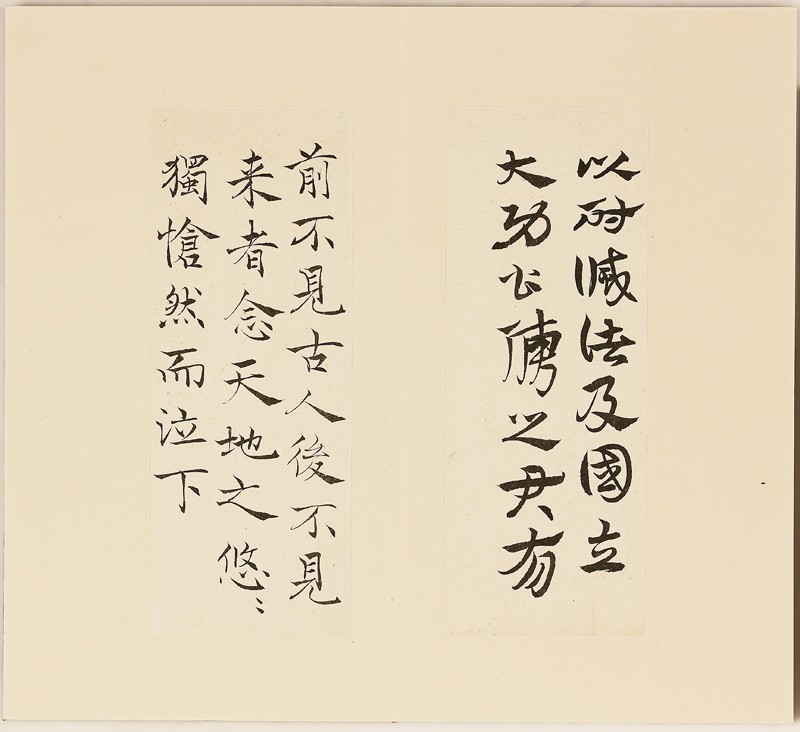 以減法及國立
大功之尹
前不見古人後不見
来者念天地之悠〻
獨愴然而泣下